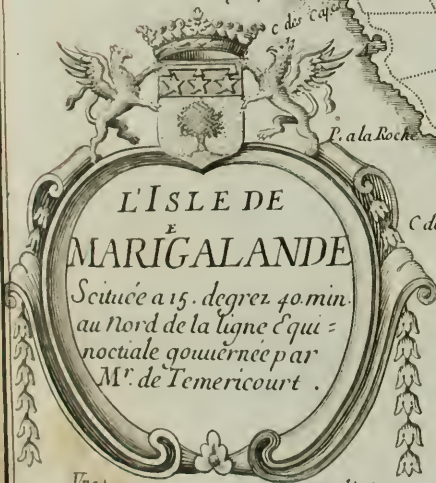 C des Cayes
P. a la Roche
L'ISLE DE
E
MARIGALANDE
Scituée a 15. degrez 40. min.
au Nord de la ligne Equi =
noctiale gouuiernée par
Mr. de Temericourt .